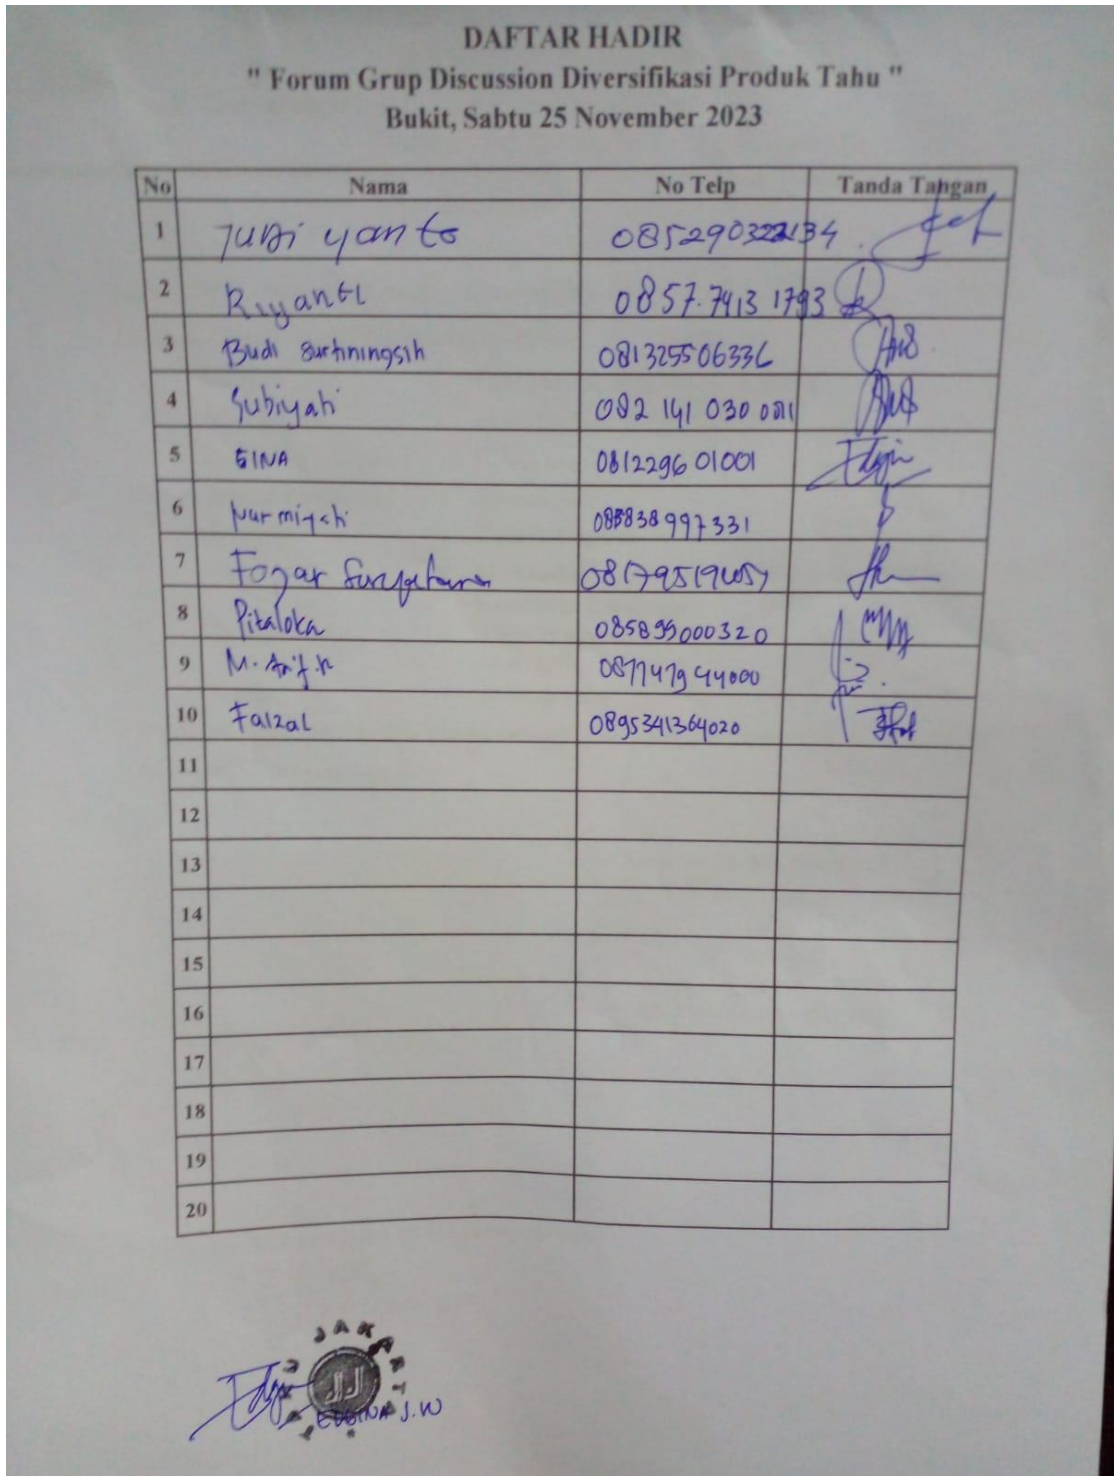 DAFTAR HADIR
" Forum Grup Discussion Diversifikasi Produk Tahu "
Bukit, Sabtu 25 November 2023
No Nama No Telp Tanda Tangan
1
2 Riyanti 0857.7413 1793
3 Budi Surtiningsih 081325506336
4 Subiyati
5 SINA 081229601001
6 Nurmiyati
7 Fogar
8 Pitaloka 085899000320
9 M. Arif.h 087747944000
10 Faizal 0895341364020
11
12
13
14
15
16
17
18
19
20
JAKARTA
J.W